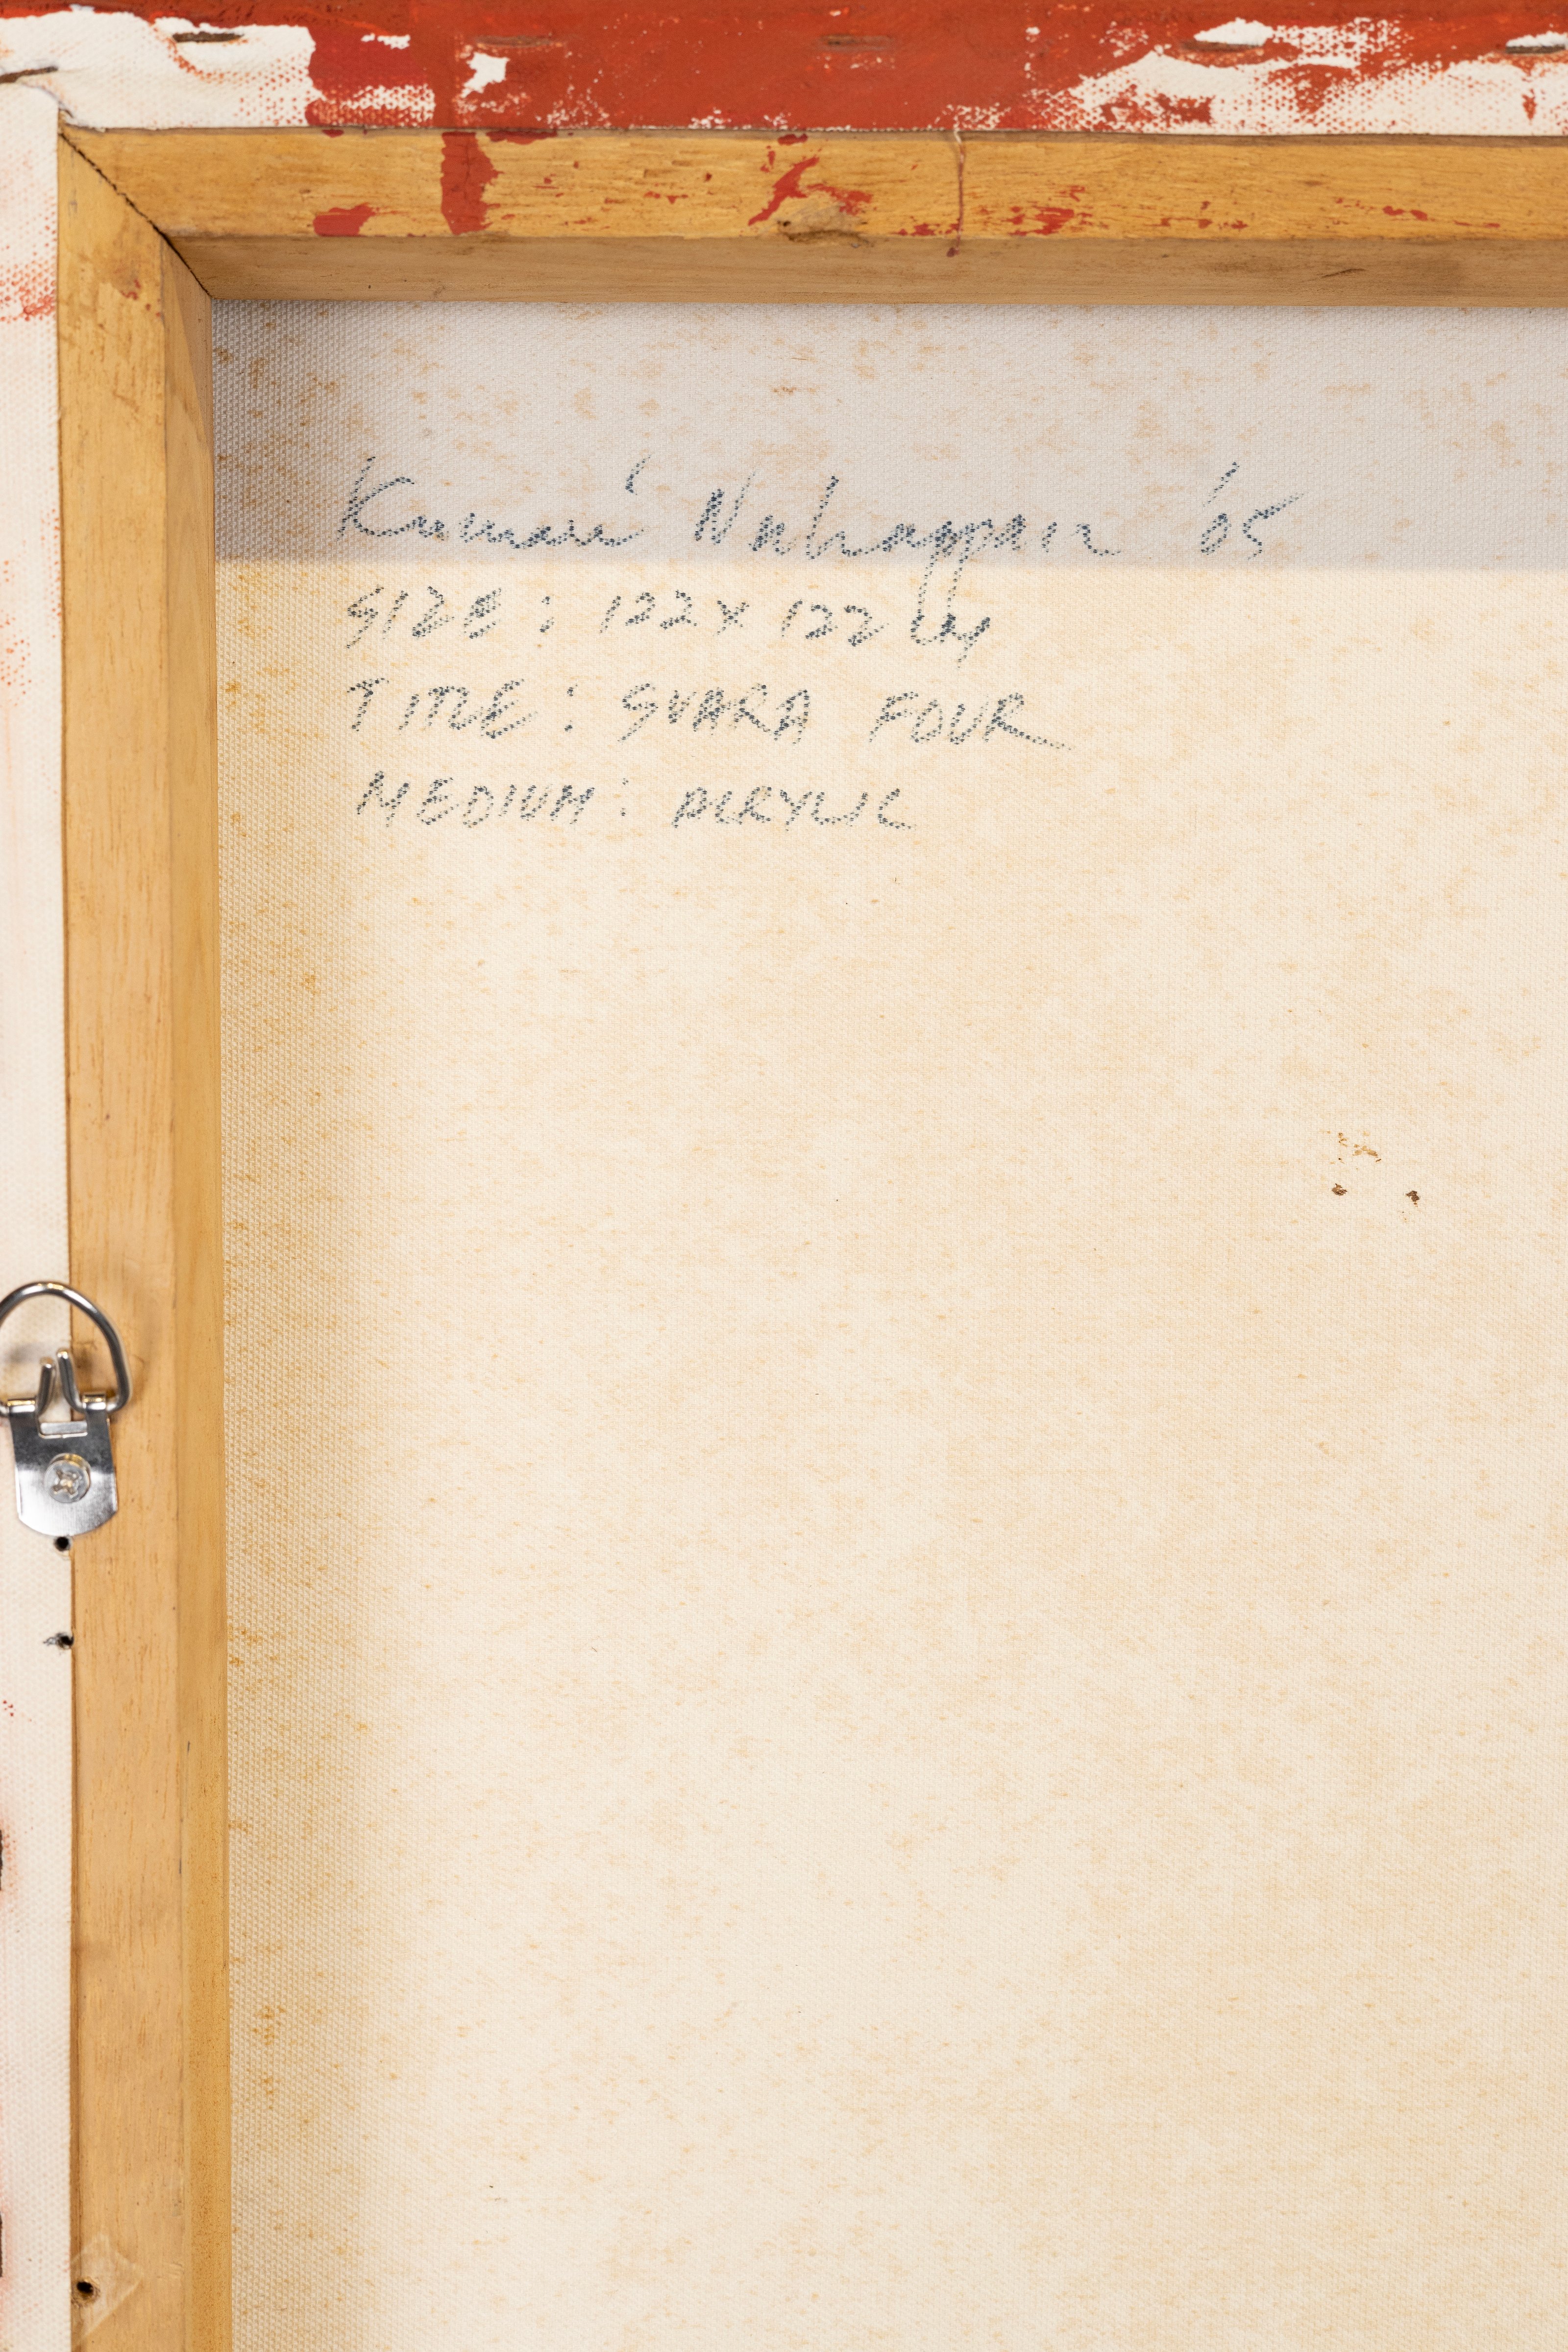 Kumari Nahappan '05
SIZE : 122 X 122 CM
TITLE : SVARA FOUR
MEDIUM : ACRYLIC